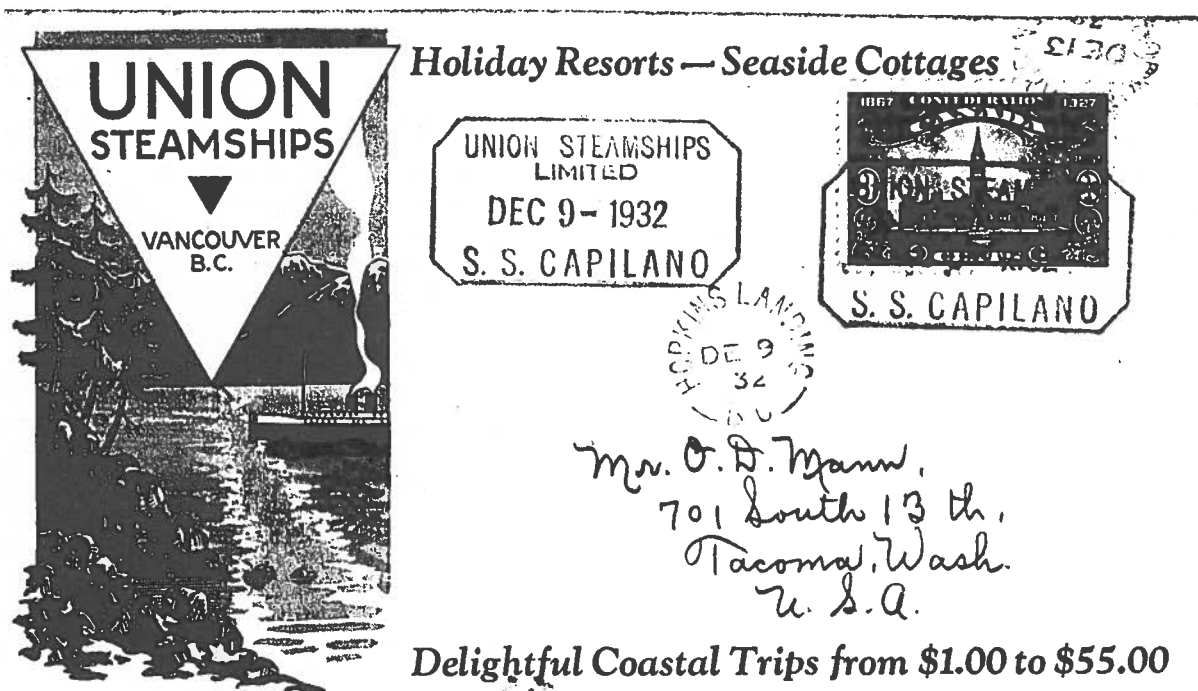 UNION
STEAMSHIPS
VANCOUVER
B.C.
Holiday Resorts — Seaside Cottages
UNION STEAMSHIPS
LIMITED
DEC 9 - 1932
S. S. CAPILANO
DE 13
32
1867 CONFEDERATION 1927
CANADA
UNION STEAM
S. S. CAPILANO
HOPKINS LANDING
DE 9
32
B C
Mr. O. D. Mann,
701 South 13 th,
Tacoma, Wash.
U. S. A.
Delightful Coastal Trips from $1.00 to $55.00